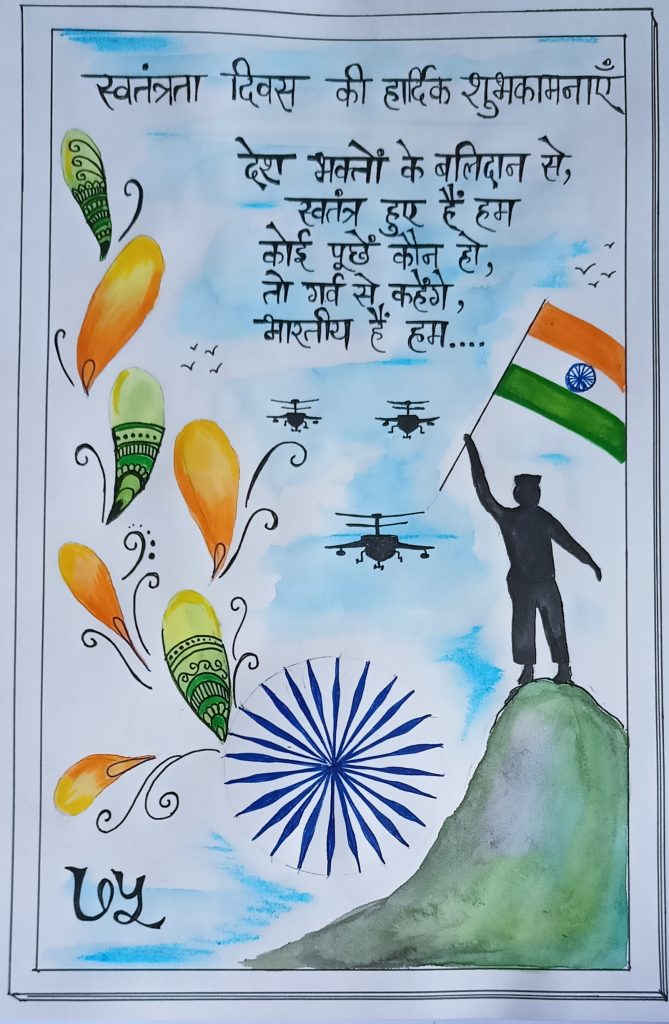 स्वतंत्रता दिवस की हार्दिक शुभकामनाएँ
देश भक्तों के बलिदान से,
स्वतंत्र हुए हैं हम
कोई पूछें कौन हो,
तो गर्व से कहेंगे,
भारतीय हैं हम....
७५